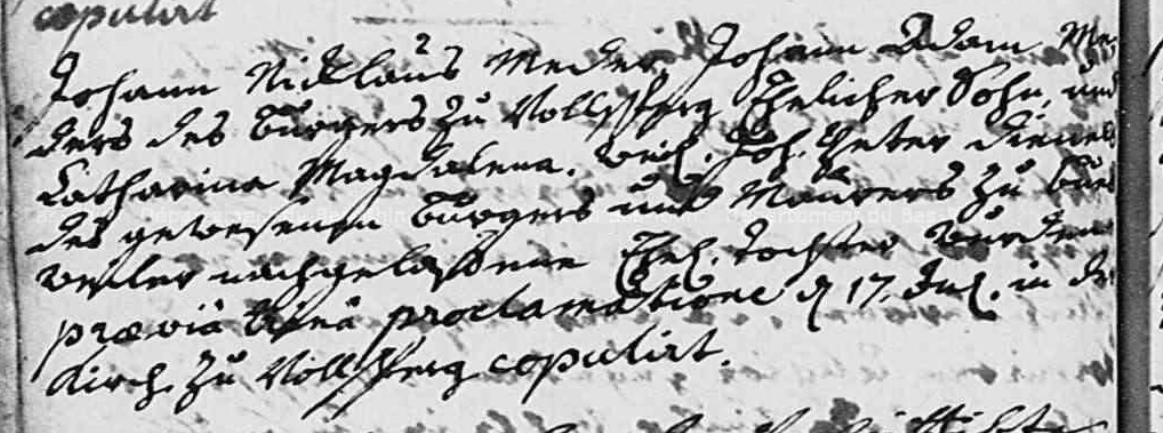 copulirt
Johann Nicklaus Meder, Johann Adam Me-
ders des Burgers zu Vollksberg Ehelicher Sohn, und
Catharina Magdalena. weil. Joh. Peter
des gewesenen Burgers und Maurers zu Büs
weiler nachgelaßene Ehel. Tochter wurden
præviâ trinâ proclamatione d 17. Jul. in der
Kirch zu Vollksberg copulirt.